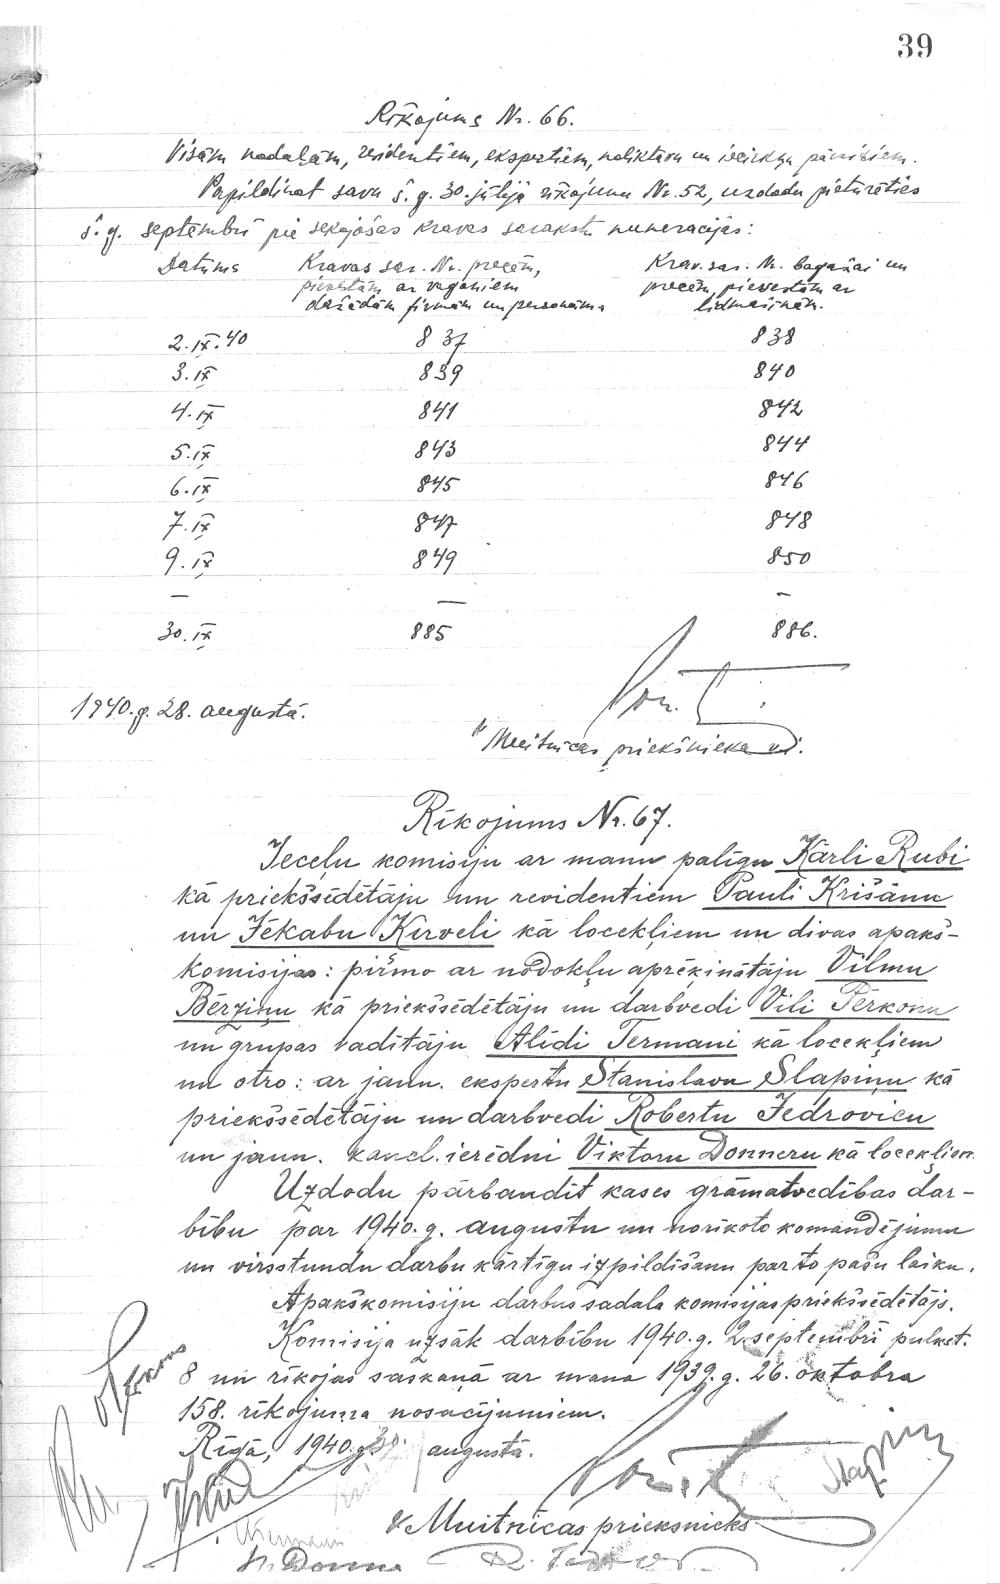 39
Rīkojums Nr. 66.
Visām nodaļām, revidentiem, ekspertiem, noliktavu un iecirkņu pārziņiem.
Papildinot savu š. g. 30. jūlija rīkojumu Nr. 52, uzdodu pieturēties
š. g. septembrī pie sekojošas kravas sarakstu numerācijas:
Datums Kravas sar. Nr. precēm, pievestām ar vagoniem dažādām firmām un personām. Krav. sar. Nr. bagažai un precēm, pievestām ar lidmašinām.
2. IX. 40 837 838
3. IX 839 840
4. IX 841 842
5. IX 843 844
6. IX 845 846
7. IX 847 848
9. IX 849 850
— — —
30. IX 885 886.
1940. g. 28. augustā.
Muitnīcas priekšnieka v. i.
Rīkojums Nr. 67.
Ieceļu komisiju ar manu palīgu Kārli Rubi
kā priekšsēdētāju un revidentiem Pauli Krišānu
un Jēkabu Kirveli kā locekļiem un divas apakš-
komisijas: pirmo ar nodokļu aprēķinātāju Vilmu
Bērziņu kā priekšsēdētāju un darbvedi Vili Pērkonu
un grupas vadītāju Alīdi Termani kā locekļiem
un otro: ar jaun. ekspertu Staņislavu Slapiņu kā
priekšsēdētāju un darbvedi Robertu Fedroviču
un jaun. kancl. ierēdni Viktoru Donneru kā locekļiem.
Uzdodu pārbaudīt kases grāmatvedības dar-
bību par 1940. g. augustu un norīkoto komandējumu
un virsstundu darbu kārtīgu izpildīšanu par to pašu laiku.
Apakškomisiju darbus sadala komisijas priekšsēdētājs.
Komisija uzsāk darbību 1940. g. 2. septembrī pulkst.
8 un rīkojas saskaņā ar mana 1939. g. 26. oktobra
158. rīkojuma nosacījumiem.
Rīgā, 1940. g. augustā.
Slapiņ
Muitnīcas priekšnieks